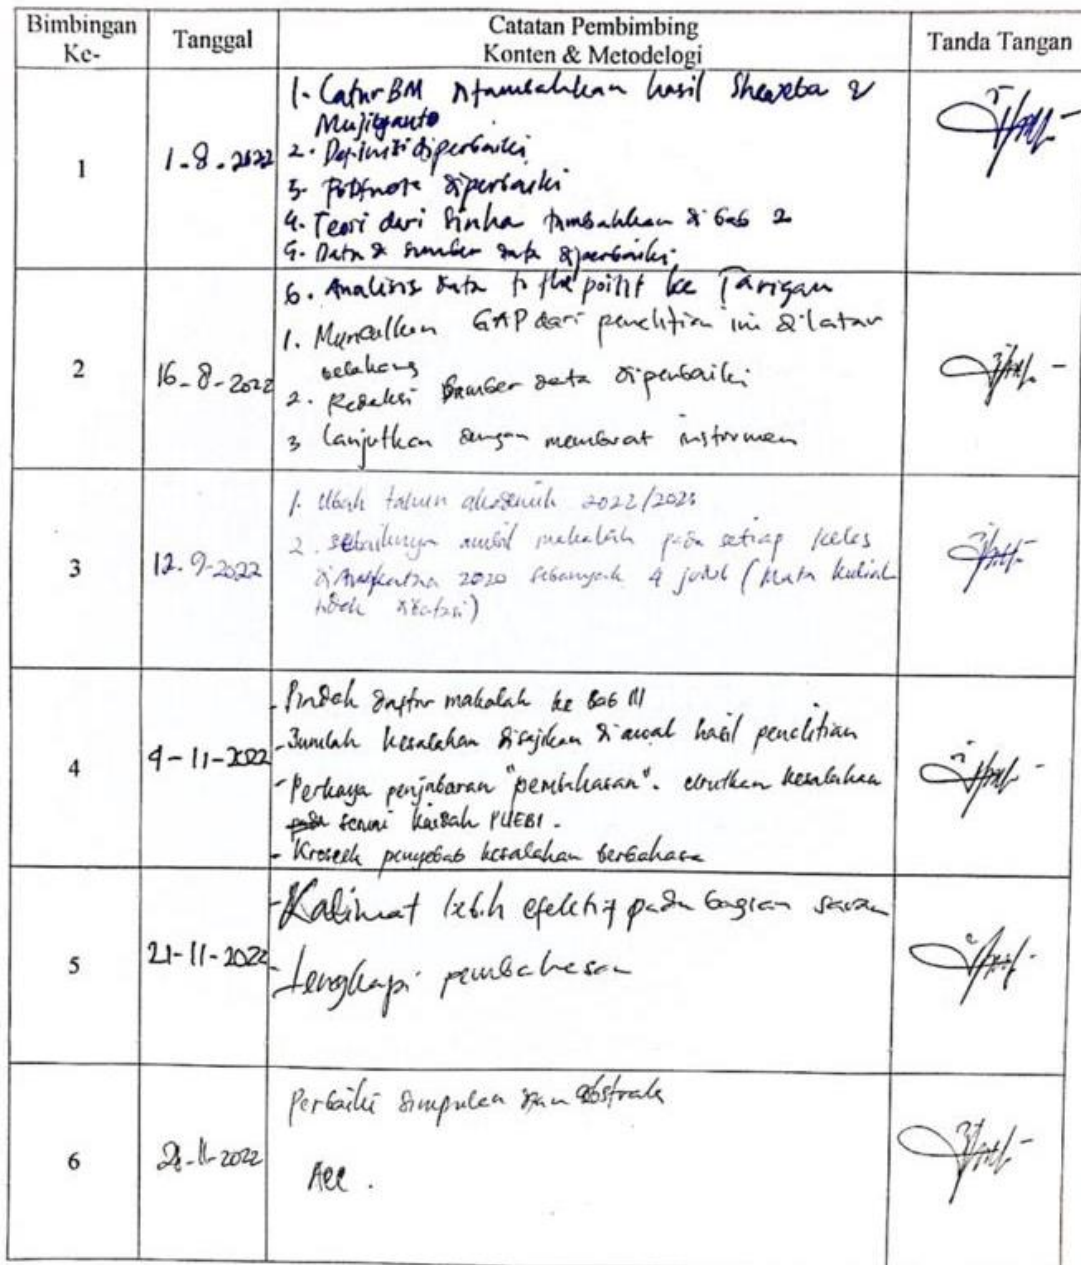 Bimbingan Ke-
Tanggal
Catatan Pembimbing
Konten & Metodelogi
Tanda Tangan
1
1-8-2022
1. Catur BM ditambahkan hasil &
Mujiyanto
2. Definisi diperbaiki
3. Footnote diperbaiki
4. Teori dari Sinha tambahkan di bab 2
5. Data & sumber data diperbaiki
6. Analisis data to the point ke Tarigan
2
16-8-2022
1. Munculkan GAP dari penelitian ini di latar
belakang
2. Redaksi sumber data diperbaiki
3 lanjutkan dengan membuat instrumen
3
12-9-2022
1. Ubah tahun akademik 2022/2023
2. sebaiknya ambil makalah pada setiap kelas
di Angkatan 2020 sebanyak 4 judul (Mata kuliah
tidak dibatasi)
4
4-11-2022
- Pindah daftar makalah ke Bab III
- Jumlah kesalahan disajikan di awal hasil penelitian
- Perkaya penjabaran "pembahasan". urutkan kesalahan
sesuai kaidah PUEBI.
- Kroscek penyebab kesalahan berbahasa
5
21-11-2022
- Kalimat lebih efektif pada bagian saran
- Lengkapi pembahasan
6
-11-2022
Perbaiki simpulan dan abstrak
Acc.